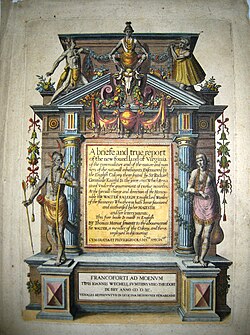 A briefe and true report
of the new found land of Virginia
of the commodities and of the nature and man
ners of the naturall inhabitants. Discouered by
the English Colony there seated by Sir Richard
Greinuile Knight In the yeere 1585. Which
rema
Vnder the gouernment of twelue monethes,
At the speciall charge and direction of the Honou-
rable SIR WALTER RALEIGH Knight lord Warden
of the stanneries Who therein hath beene fauoured
and authorised by her MAIESTIE
and her letters patents:
This fore booke is made in English
By Thomas Hariot seruant to the abouenamed
Sir WALTER, a member of the Colony, and there
imployed in discouering
CVM GRATIA ET PRIVILEGIO CÆS. MATIS
FRANCOFORTI AD MOENVM
TYPIS IOANNIS WECHELI, SVMTIBVS VERO THEODORI
DE BRY ANNO
VENALES REPERIVNTVR IN OFFICINA